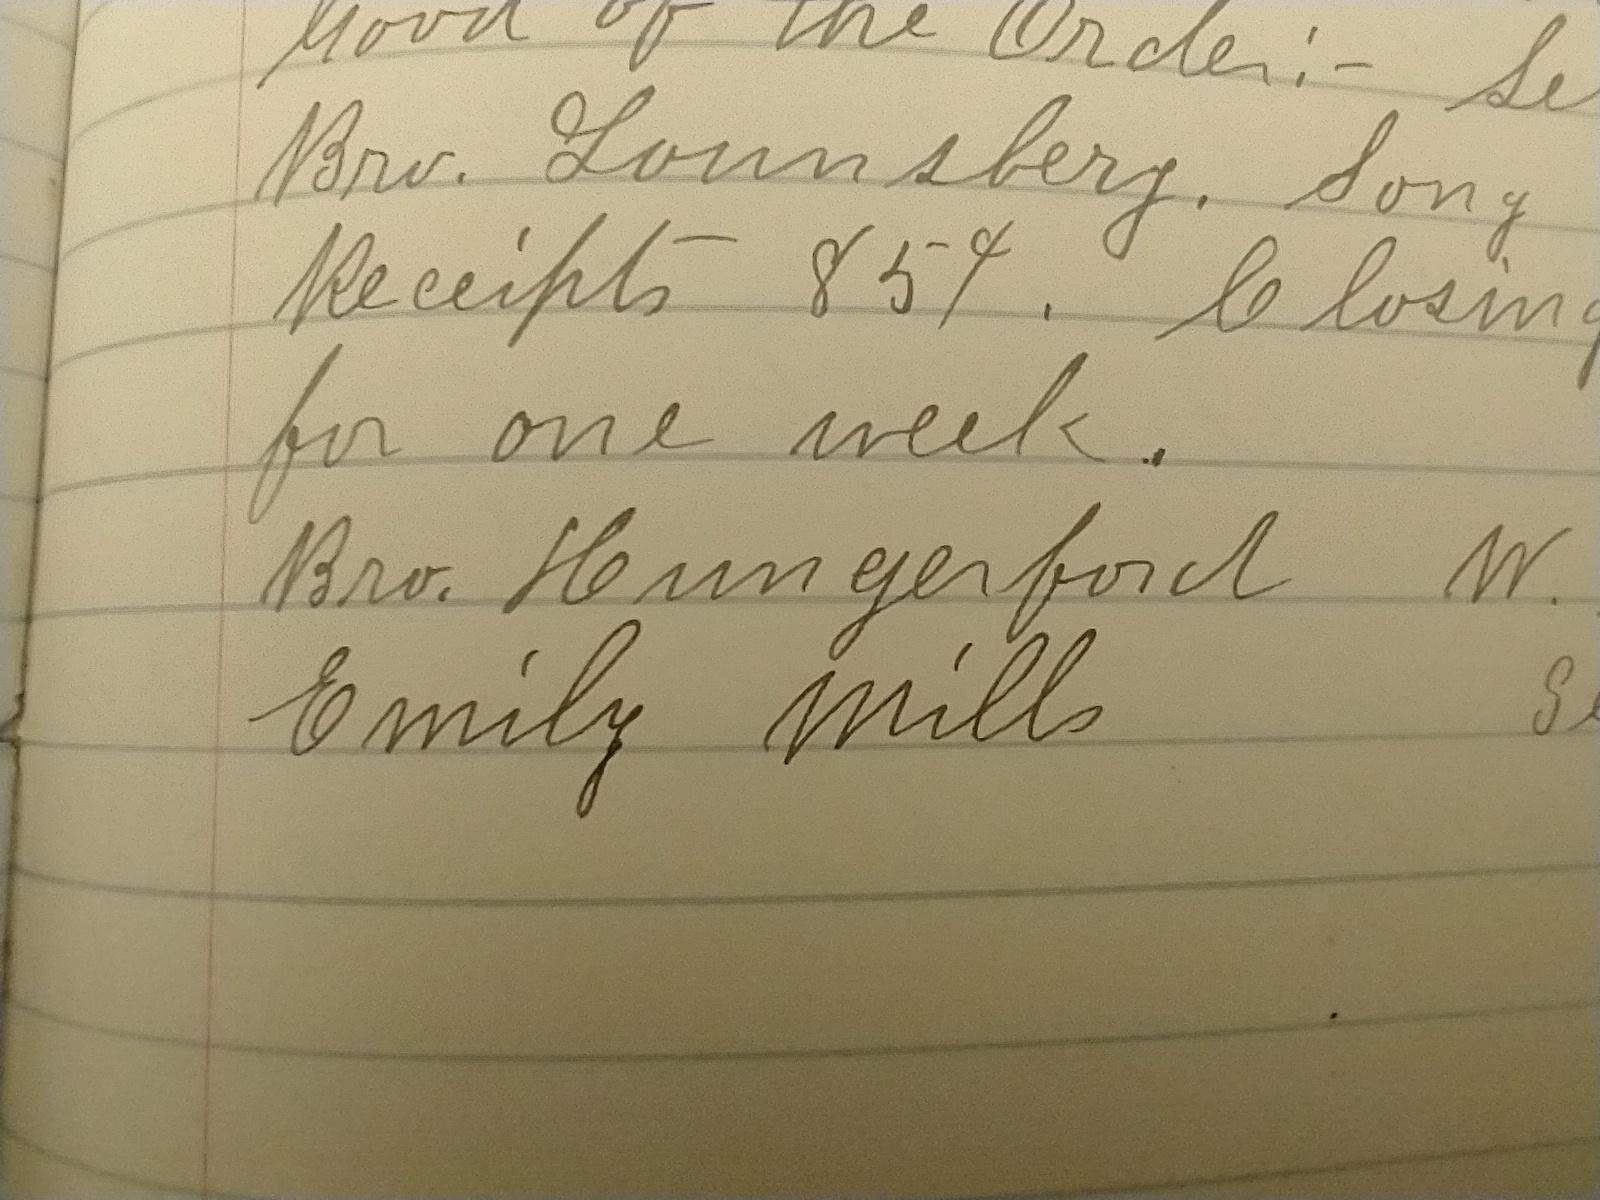 Good of the Order:-
Bro. Lounsberg. Song
Receipts 85¢. Closing
for one week.
Bro. Hungerford W.
Emily Mills